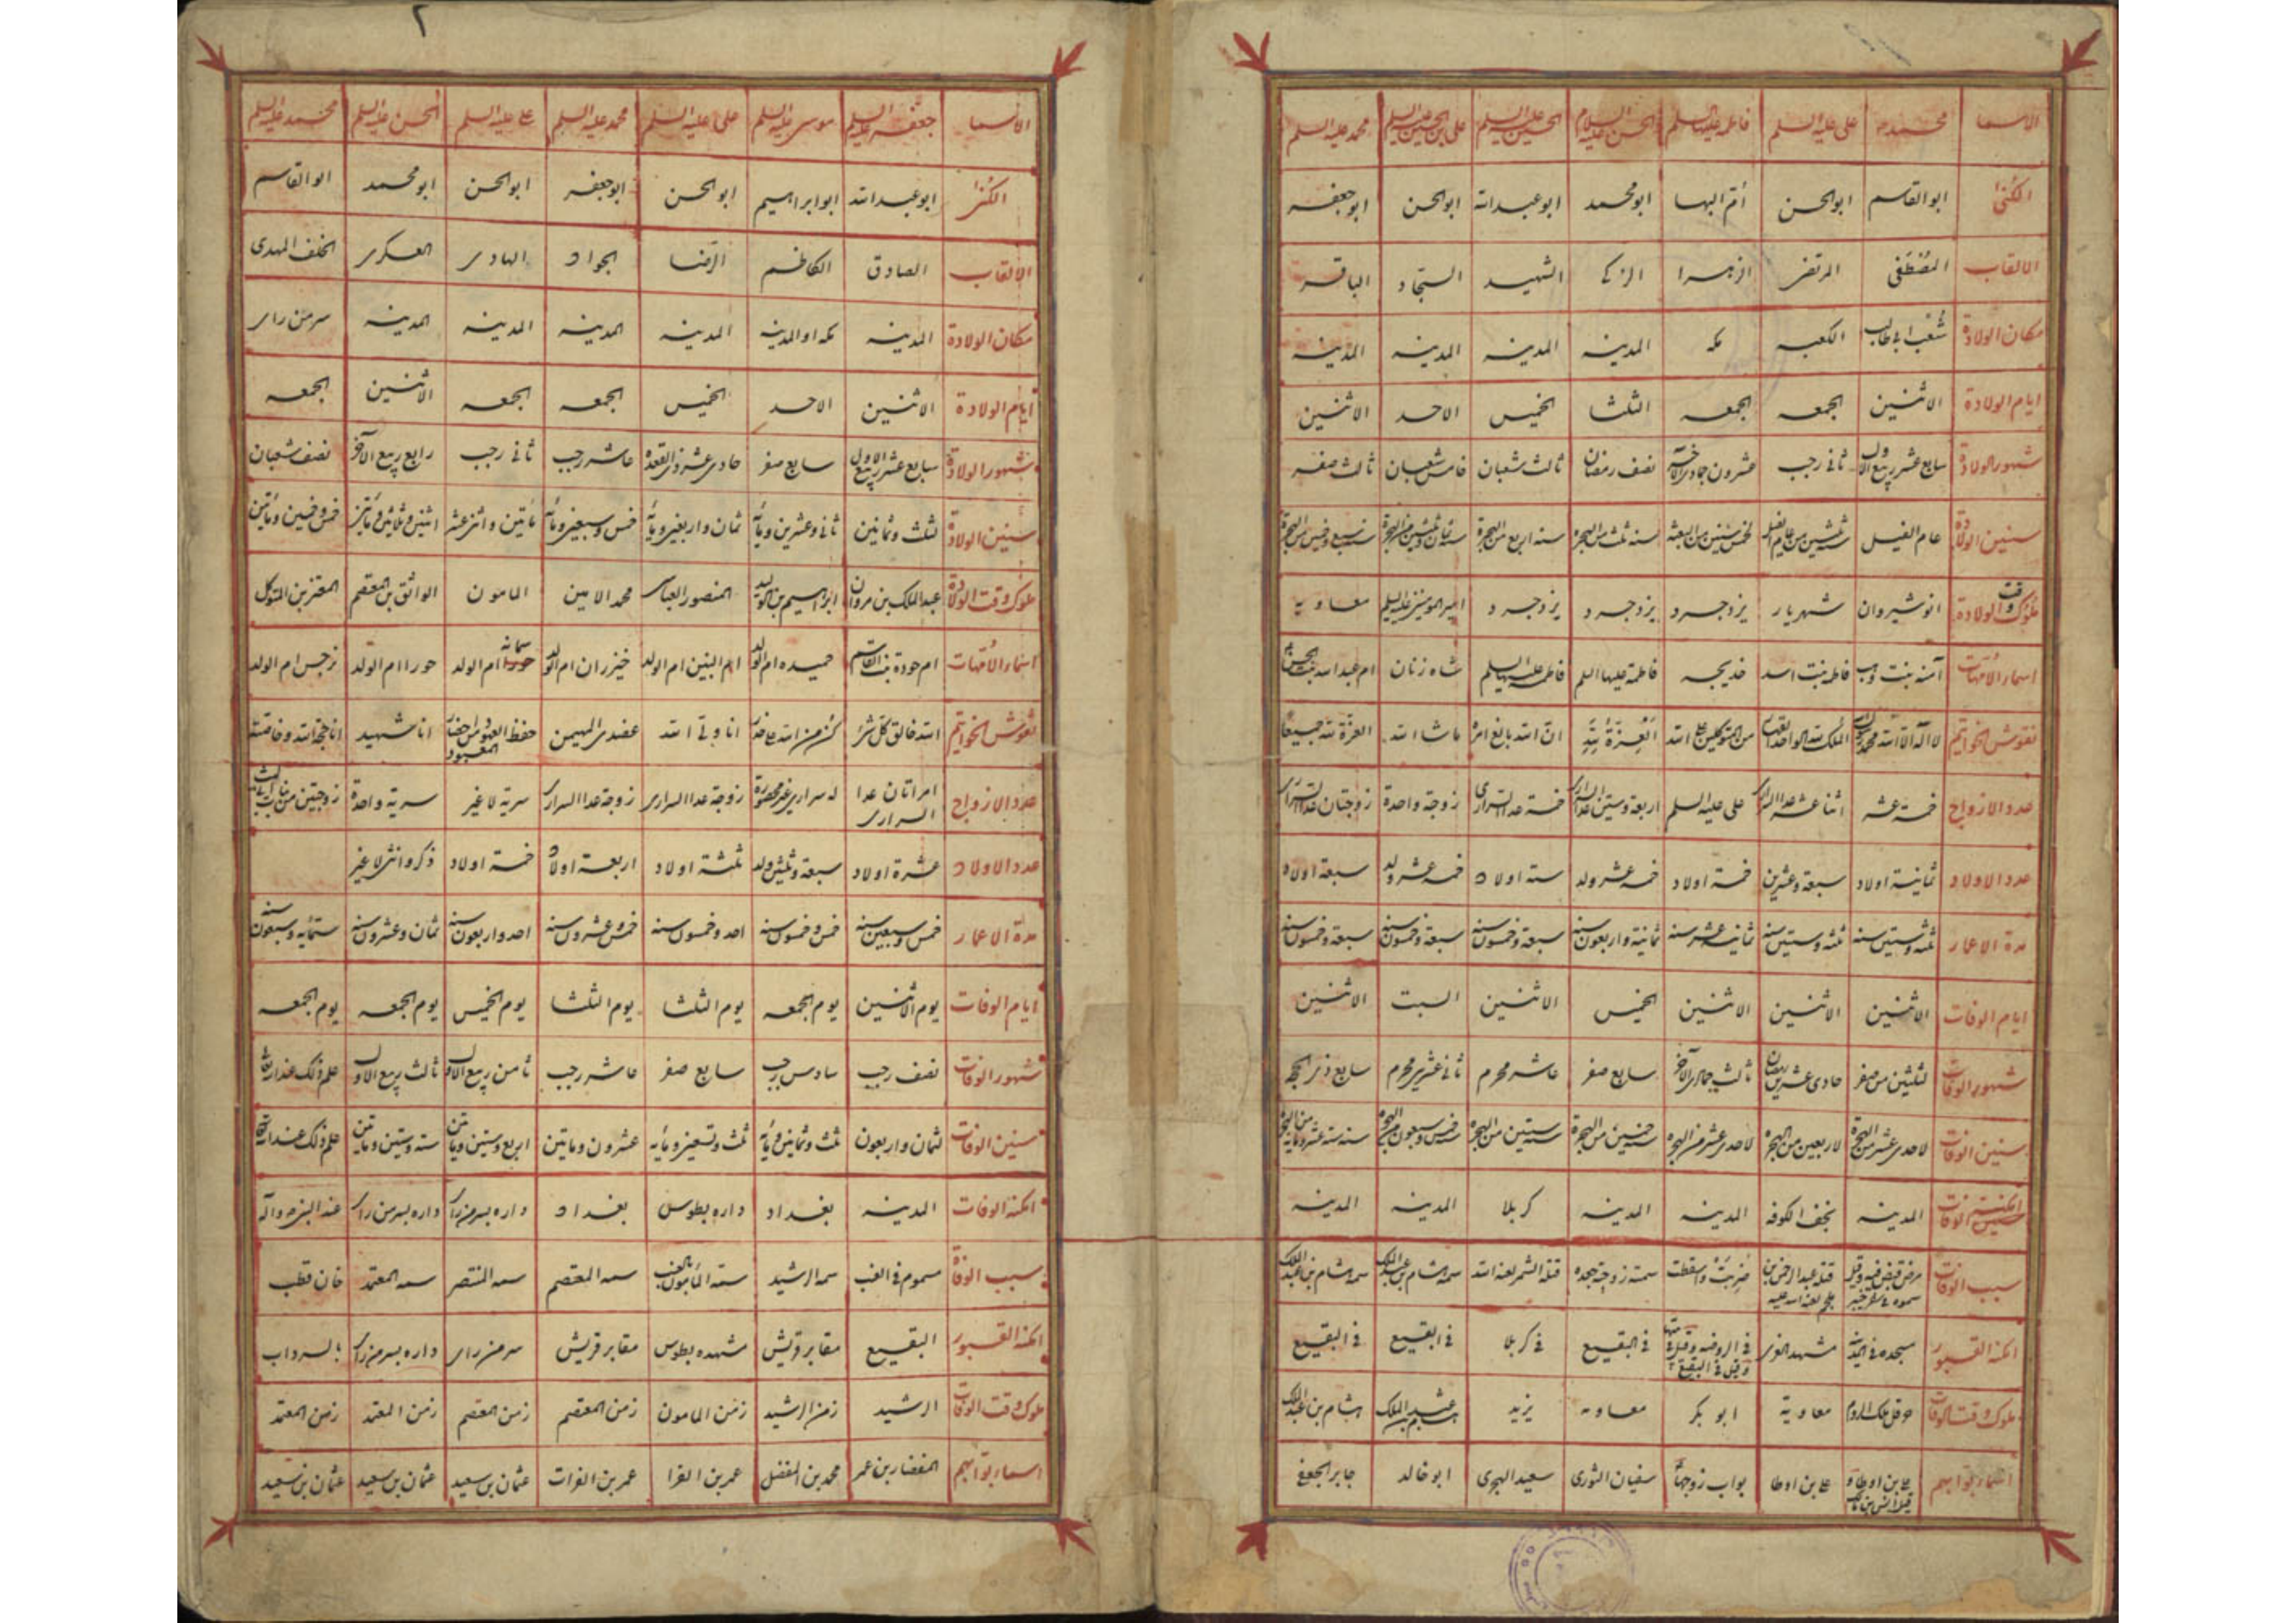 الاسما محمد ص على عليه السلم فاطمه عليها السلم الحسن عليه السلام الحسين عليه السلم على بن الحسين عليه السلم محمد عليه السلم
الكنى ابو القاسم ابو الحسن ام ابيها ابو محمد ابو عبد الله ابو الحسن ابو جعفر
الالقاب المصطفى المرتضى الزهرا الزكى الشهيد السجاد الباقر
مكان الولادة شعب ابى طالب الكعبه مكه المدينه المدينه المدينه المدينه
ايام الولادة الاثنين الجمعه الجمعه الثلثا الخميس الاحد الاثنين
شهور الولادة سابع عشر ربيع الاول ثانى رجب عشرون جمادى الآخر نصف رمضان ثالث شعبان خامس شعبان ثالث صفر
سنين الولادة عام الفيل ثلثين من عام الفيل لخمس سنين من البعثه سنه ثلث من الهجره سنه اربع من الهجرة سنه ثمان وثلثين من الهجرة سنه سبع وخمسين من الهجرة
ملوك وقت الولادة انوشيروان شهريار يزدجرد يزدجرد يزدجرد امير المومنين عليه السلم معاويه
اسماء الامهات آمنه بنت وهب فاطمه بنت اسد خديجه فاطمة عليها السلم فاطمه عليها السلم شاه زنان ام عبد الله بنت الحسن
نقوش الخواتيم لا اله الا الله محمد رسول الله الملك لله الواحد القهار من المتوكلين على الله العزة لله ان الله بالغ امره ماشا الله العزة لله جميعا
عدد الازواج خمسة عشر اثنا عشر عدا السرارى على عليه السلم اربعة وستين عدا السرارى خمسة عدا السرارى زوجة واحدة زوجتان عدا السرارى
عدد الاولاد ثمانية اولاد سبعة وعشرين خمسة اولاد خمسه عشر ولد ستة اولاد خمسه عشر ولد سبعة اولاد
مدة الاعمار ثلثه وستين سنه ثلثه وستين سنه ثمانيه عشر سنه ثمانية واربعون سنه سبعة وخمسون سنه سبعة وخمسون سنه سبعة وخمسون سنه
ايام الوفات الاثنين الاثنين الاثنين الخميس الاثنين السبت الاثنين
شهور الوفات لثلثين من صفر حادى عشرين رمضان ثالث جمادى الآخر سابع صفر عاشر محرم ثانى عشر محرم سابع ذى الحجه
سنين الوفات لاحدى عشر من الهجرة لاربعين من الهجره لاحدى عشر من الهجره سنه خمسين من الهجرة سنه ستين من الهجره سنه خمس وسبعون من الهجره سنه سته عشر ومايه من الهجرة
امكنة الوفات المدينه نجف الكوفه المدينه المدينه كربلا المدينه المدينه
سبب الوفات مرض فقبض فيه وقيل سموه فى خيبر قتله عبد الرحمن بن ملجم لعنه الله عليه ضربت واسقطت سمته زوجته جعده قتله الشمر لعنه الله سمه هشام بن عبد الملك سمه هشام بن عبد الملك
امكنة القبور مسجده فى المدينه مشهد الغرى فى الروضه وقيل فى بيتها وقيل فى البقيع فى البقيع فى كربلا فى البقيع فى البقيع
ملوك وقت الوفات هرقل ملك الروم معاوية ابو بكر معاويه يزيد هشام بن عبد الملك هشام بن عبد الملك
اسماء بوابيهم على بن ابى طالب وقيل انس بن مالك بواب زوجها سفيان الثورى سعيد الهجرى ابو خالد جابر الجعفى
الاسما جعفر عليه السلم موسى عليه السلم على عليه السلم محمد عليه السلم على عليه السلم الحسن عليه السلم محمد عليه السلم
الكنى ابو عبد الله ابو ابراهيم ابو الحسن ابو جعفر ابو الحسن ابو محمد ابو القاسم
الالقاب الصادق الكاظم الرضا الجواد الهادى العسكرى الخلف المهدى
مكان الولادة المدينه مكه او المدينه المدينه المدينه المدينه المدينه سر من راى
ايام الولادة الاثنين الاحد الخميس الجمعه الجمعه الاثنين الجمعه
شهور الولادة سابع عشر ربيع الاول سابع صفر حادى عشر ذى القعده عاشر رجب ثانى رجب رابع ربيع الآخر نصف شعبان
سنين الولادة لثلث وثمانين ثمانى وعشرين ومايه ثمان واربعين ومايه خمس وسبعين ومايه ماتين واثنى عشر اثنين وثلاثين وماتين خمس وخمسين وماتين
ملوك وقت الولادة عبد الملك بن مروان ابراهيم بن الوليد المنصور العباسى محمد الامين المامون الواثق بن المعتصم المعتز بن المتوكل
اسماء الامهات ام فروة بنت القاسم حميده ام الولد ام البنين ام الولد خيزران ام الولد سمانه ام الولد حورا ام الولد نرجس ام الولد
نقوش الخواتيم الله خالق كل شئ كن من الله على حذر انا ولى الله عضدى المهيمن حفظ العهود من اخلاق المعبود انا شهيد انا حجة الله وخاصته
عدد الازواج امراتان عدا السرارى له سرارى غير محصورة زوجة عدا السرارى زوجة عدا السرارى سرية لا غير سرية واحدة
عدد الاولاد عشرة اولاد سبعة وثلثين ولد ثلثة اولاد اربعة اولاد خمسة اولاد ذكر وانثى لا غير
مدة الاعمار خمس وسبعين سنه خمس وخمسون سنه احد وخمسون سنه خمس وعشرون سنه احد واربعون سنه ثمان وعشرون سنه ستمائه وسبعون سنه
ايام الوفات يوم الاثنين يوم الجمعه يوم الثلثا يوم الثلثا يوم الخميس يوم الجمعه يوم الجمعه
شهور الوفات نصف رجب سادس رجب سابع صفر عاشر رجب ثامن ربيع الاول ثالث ربيع الاول علم ذلك عند الله
سنين الوفات لثمان واربعون ثلث وثمانين ومايه ثلث وتسعين ومايه عشرون وماتين اربع وستين وماتين سته وستين وماتين علم ذلك عند الله
امكنة الوفات المدينه بغداد داره بطوس بغداد داره بسر من راى داره بسر من راى
سبب الوفاة مسموم فى العنب سمه الرشيد سمه المامون بالعنب سمه المعتصم سمه المنتصر سمه المعتمد
امكنة القبور البقيع مقابر قريش مشهده بطوس مقابر قريش سر من راى داره بسر من راى بالسرداب
ملوك وقت الوفات الرشيد زمن الرشيد زمن المامون زمن المعتصم زمن المعتصم زمن المعتمد زمن المعتمد
اسماء بوابيهم بن عمر محمد بن المفضل عمر بن الفرا عمر بن الفرات عثمان بن سعيد عثمان بن سعيد عثمان بن سعيد